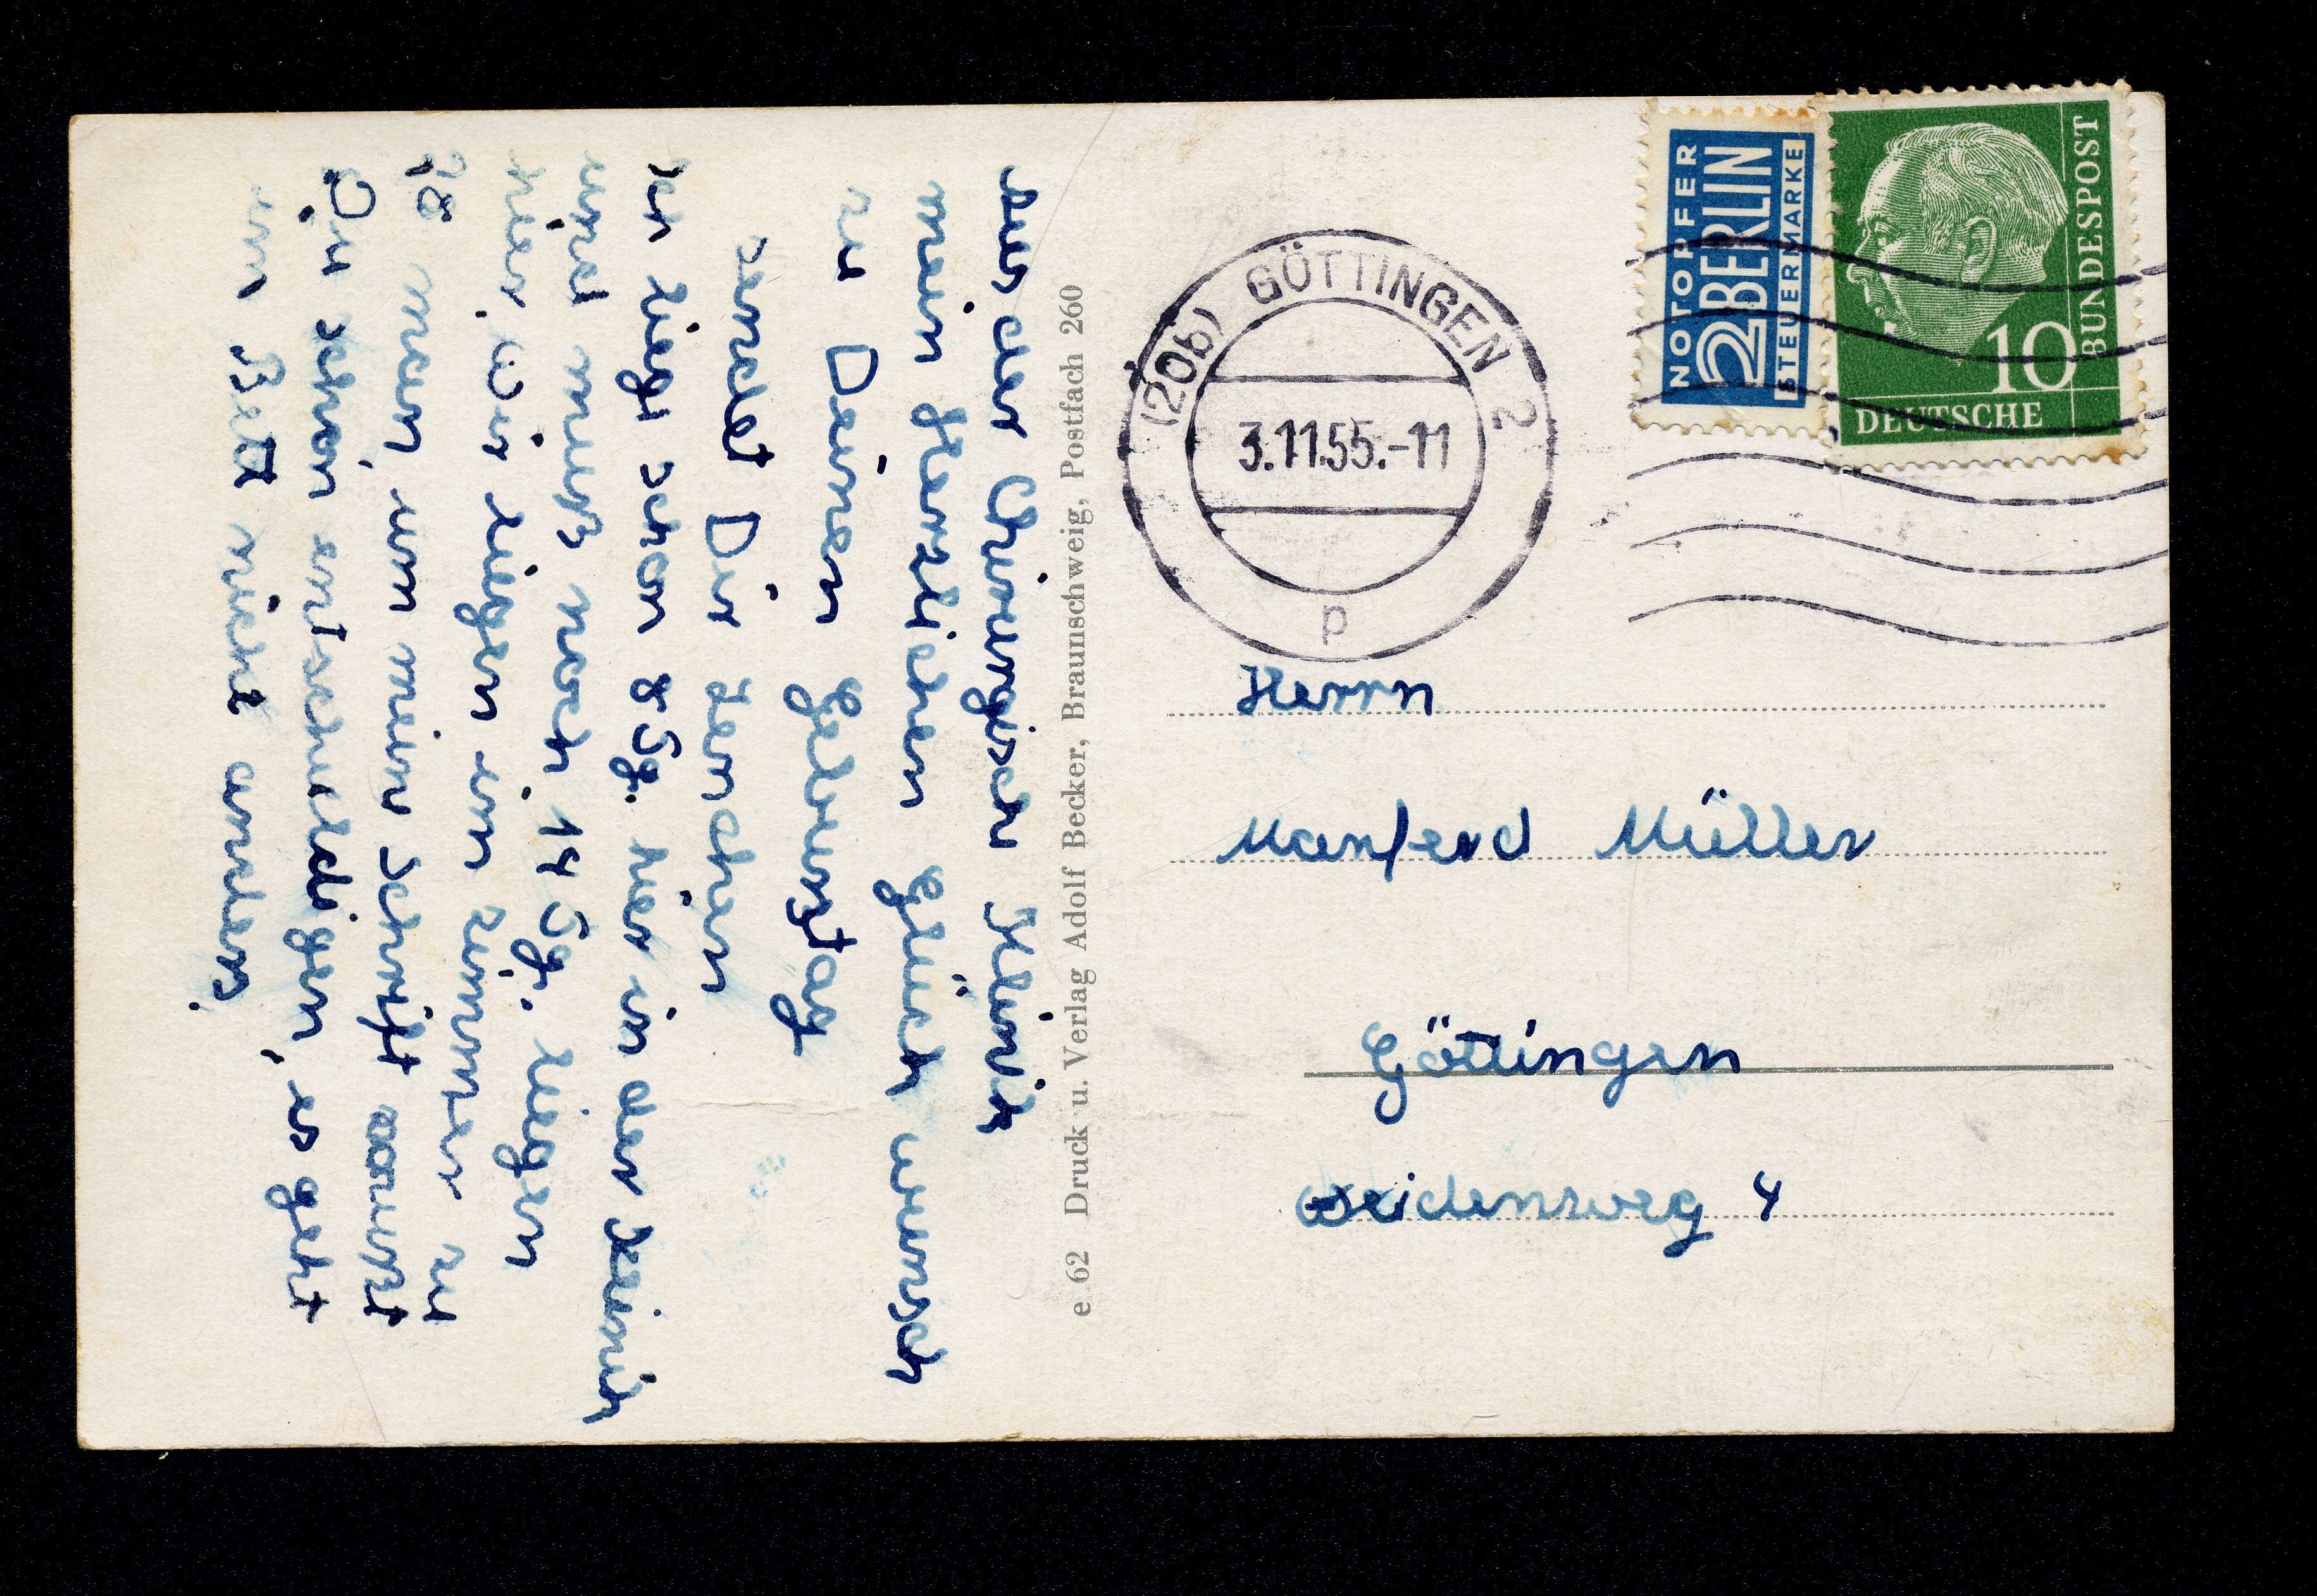 Aus der Chirurgischi Klinik
mein Herzlichen Glück wunsch
zu Deinen Geburstag
sendet Dir
Ich liegt schon 8 Tg. hier in der Klinik
und muß noch 14 Tg. liegen
hier, Wir liegen im zimmer zu
18 man, um mein Schrift
Du schon entschuldigen, es geht
im Bett nicht anders.
e 62 Druck u. Verlag Adolf Becker, Braunschweig, Postfach 260
(20b) GÖTTINGEN 2
3.11.55.-11
p
NOTOPFER
2 BERLIN
STEUERMARKE
10
DEUTSCHE
BUNDESPOST
Herrn
Manferd Müller
Göttingen
Weidenweg 4